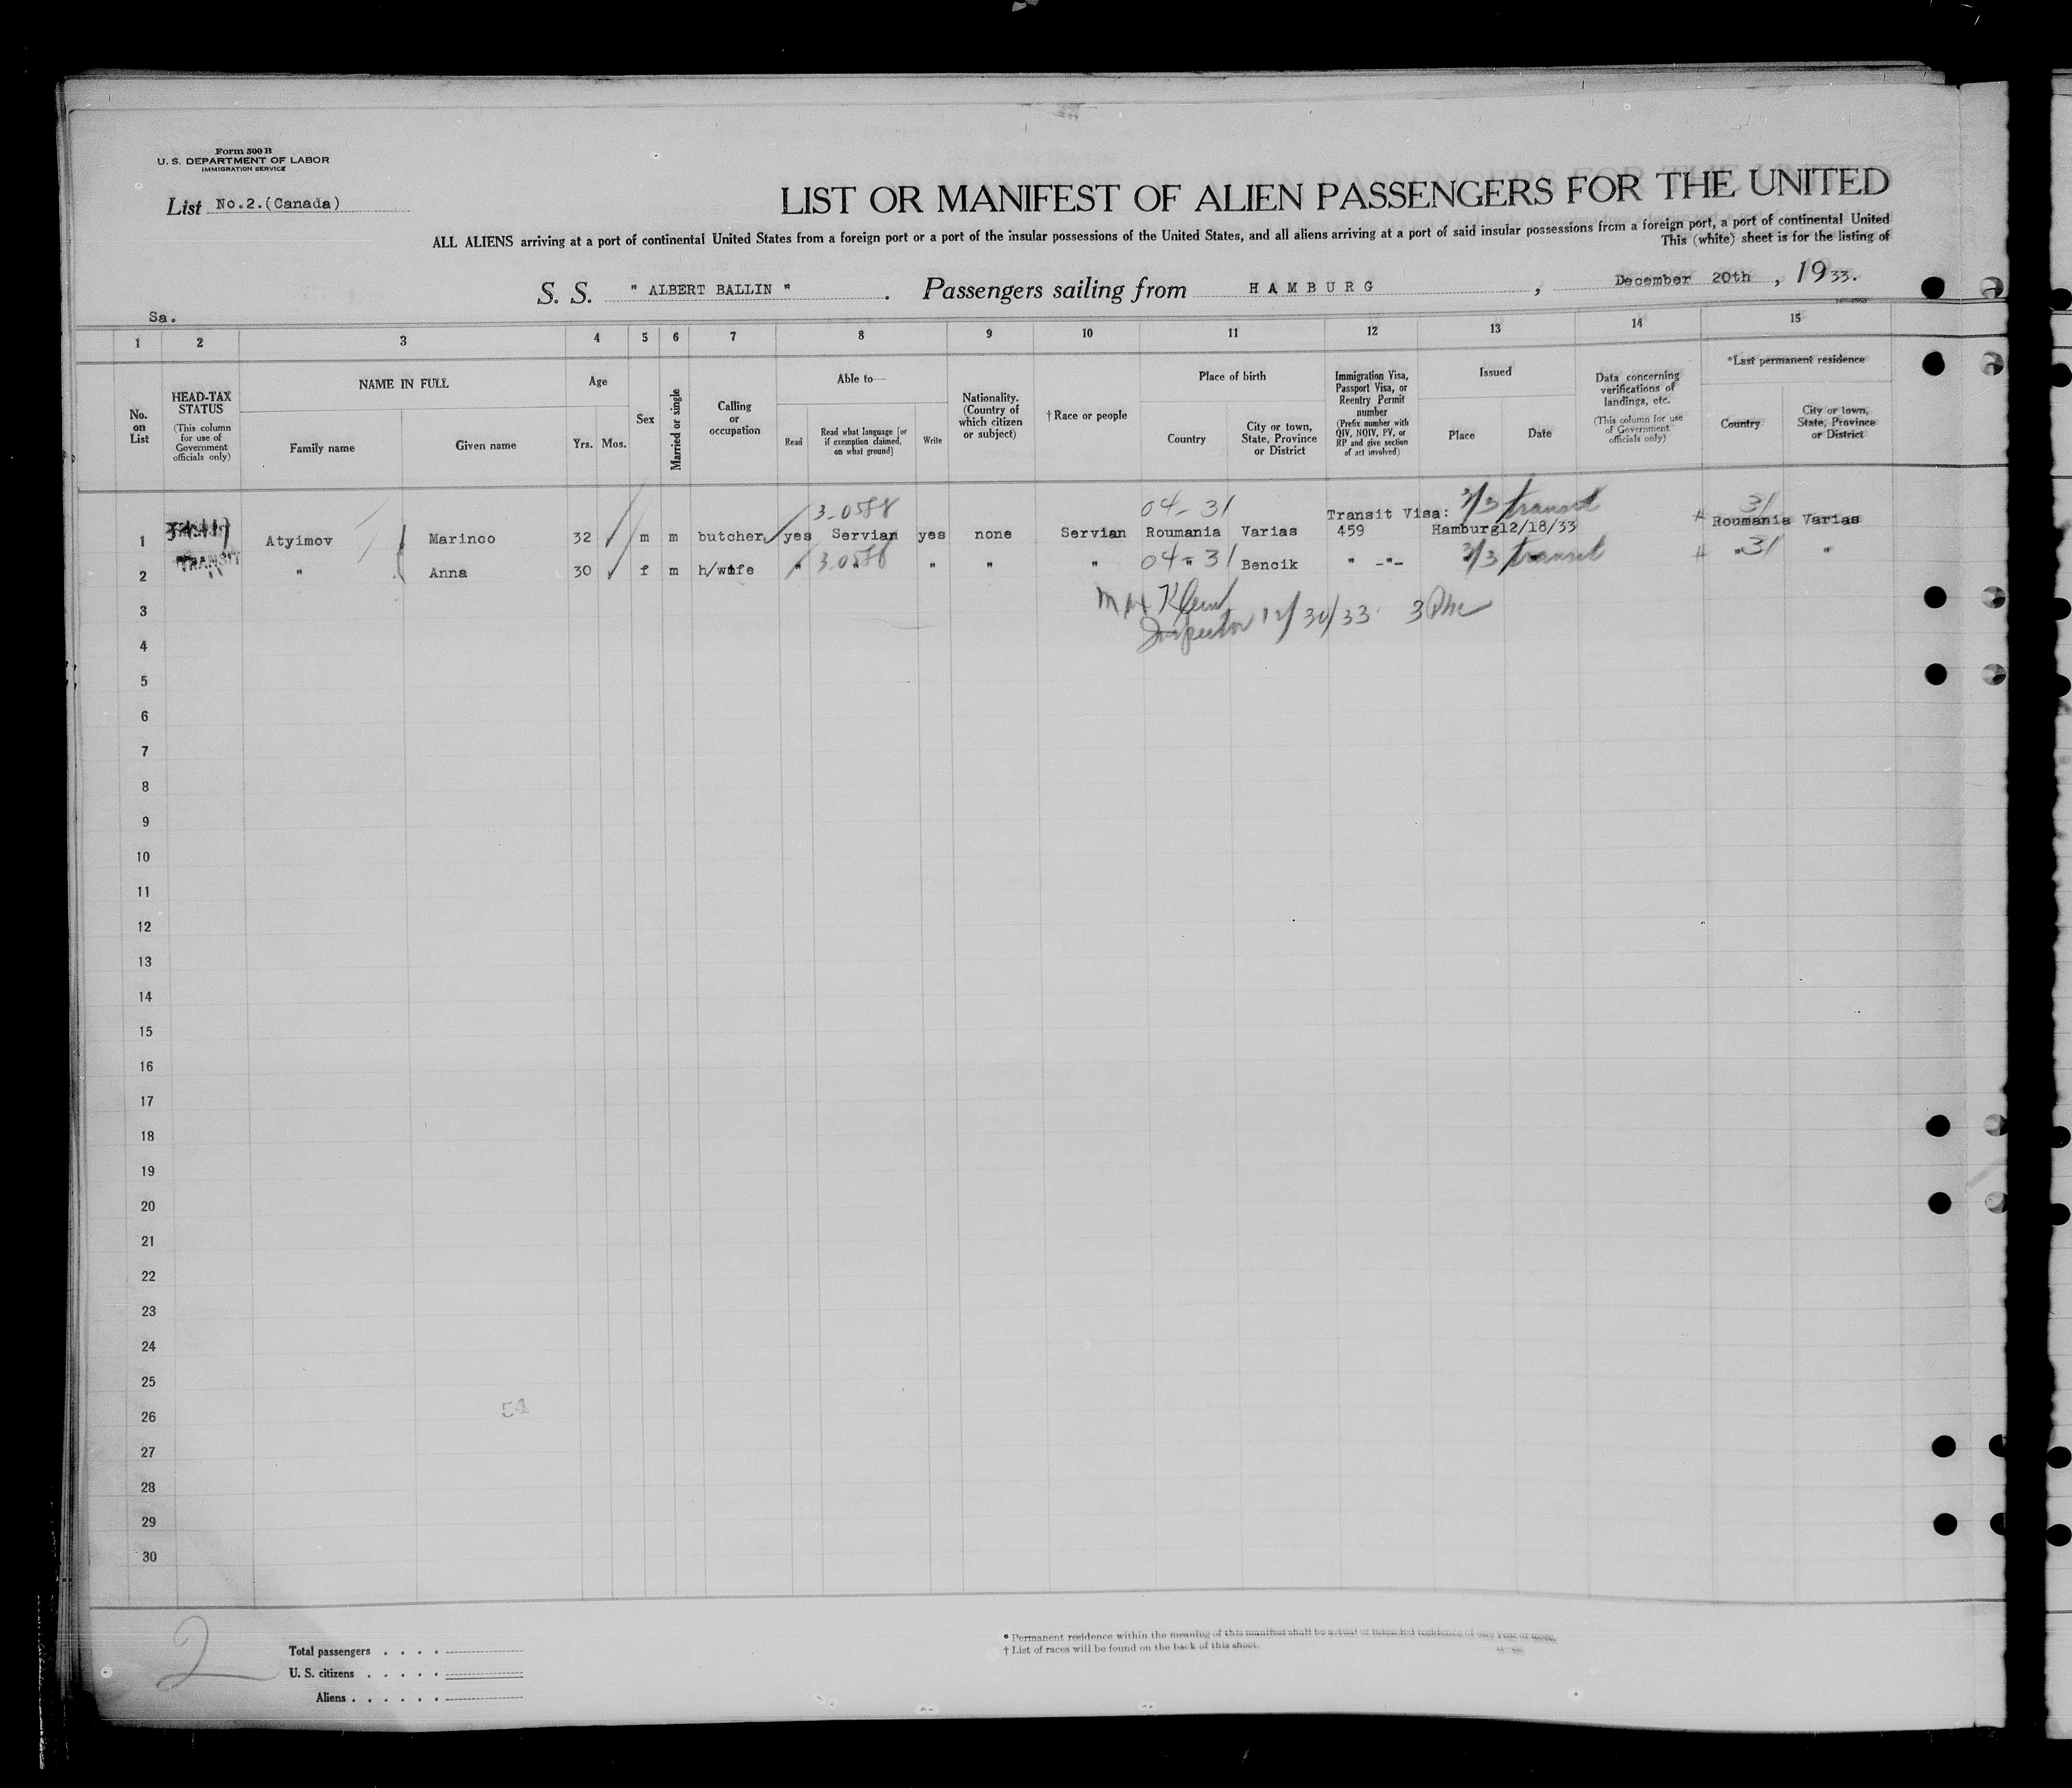 Form 500 B
U. S. DEPARTMENT OF LABOR
IMMIGRATION SERVICE
List No.2.(Canada)
LIST OR MANIFEST OF ALIEN PASSENGERS FOR THE UNITED
ALL ALIENS arriving at a port of continental United States from a foreign port or a port of the insular possessions of the United States, and all aliens arriving at a port of said insular possessions from a foreign port, a port of continental United
This (white) sheet is for the listing of
S. S. " ALBERT BALLIN " . Passengers sailing from HAMBURG , December 20th , 1933.
Sa.
1 2 3 4 5 6 7 8 9 10 11 12 13 14 15
No. on List
HEAD-TAX STATUS
(This column for use of Government officials only)
NAME IN FULL
Family name
Given name
Age
Yrs. Mos.
Sex
Married or single
Calling or occupation
Able to—
Read
Read what language [or if exemption claimed, on what ground]
Write
Nationality. (Country of which citizen or subject)
† Race or people
Place of birth
Country
City or town, State, Province or District
Immigration Visa, Passport Visa, or Reentry Permit number
(Prefix number with QIV, NQIV, PV, or RP and give section of act involved)
Issued
Place
Date
Data concerning verifications of landings, etc.
(This column for use of Government officials only)
*Last permanent residence
Country
City or town, State, Province or District
3-0588 04-31 Transit Visa: 3/3 transit 31
1 Atyimov Marinco 32 m m butcher yes Servian yes none Servian Roumania Varias 459 Hamburg12/18/33 Roumania Varias
3-0588 04-31 3/3 transit 31
2 TRANSIT " Anna 30 f m h/wife " " " " " " Bencik " -"- " "
Klein
Inspector 12/30/33
3
4
5
6
7
8
9
10
11
12
13
14
15
16
17
18
19
20
21
22
23
24
25
26
27
28
29
30
2
Total passengers . . . .
U. S. citizens . . . . .
Aliens . . . . . .
* Permanent residence within the meaning of this manifest shall be actual or intended residence of one year or more.
† List of races will be found on the back of this sheet.